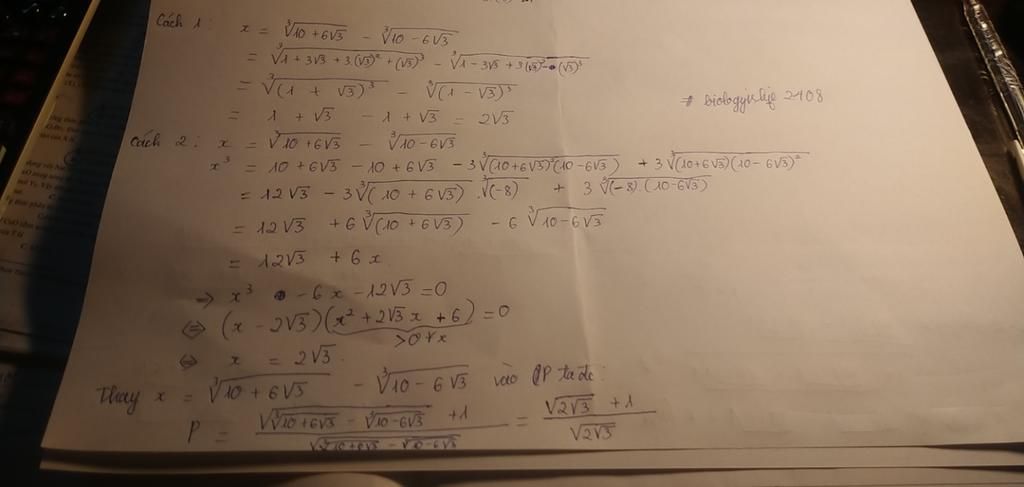 Cách 1: x = ∛(10 + 6√3) - ∛(10 - 6√3)
= ∛(1 + 3√3 + 3(√3)² + (√3)³) - ∛(1 - 3√3 + 3(√3)² - (√3)³)
= ∛((1 + √3)³) - ∛((1 - √3)³)
# biologyislife 2408
= 1 + √3 - 1 + √3 = 2√3
Cách 2: x = ∛(10 + 6√3) - ∛(10 - 6√3)
x³ = 10 + 6√3 - 10 + 6√3 - 3∛((10 + 6√3)²(10 - 6√3)) + 3∛((10 + 6√3)(10 - 6√3)²)
= 12√3 - 3∛(10 + 6√3) . ∛(-8) + 3∛((-8).(10 - 6√3))
= 12√3 + 6∛(10 + 6√3) - 6∛(10 - 6√3)
= 12√3 + 6x
=> x³ - 6x - 12√3 = 0
<=> (x - 2√3)(x² + 2√3x + 6) = 0
> 0 ∀x
<=> x = 2√3.
Thay x = ∛(10 + 6√3) - ∛(10 - 6√3) vào P ta đc:
P = (√(∛(10 + 6√3) - ∛(10 - 6√3)) + 1) / √(∛(10 + 6√3) - √(10 - 6√3)) = (√(2√3) + 1) / √(2√3)